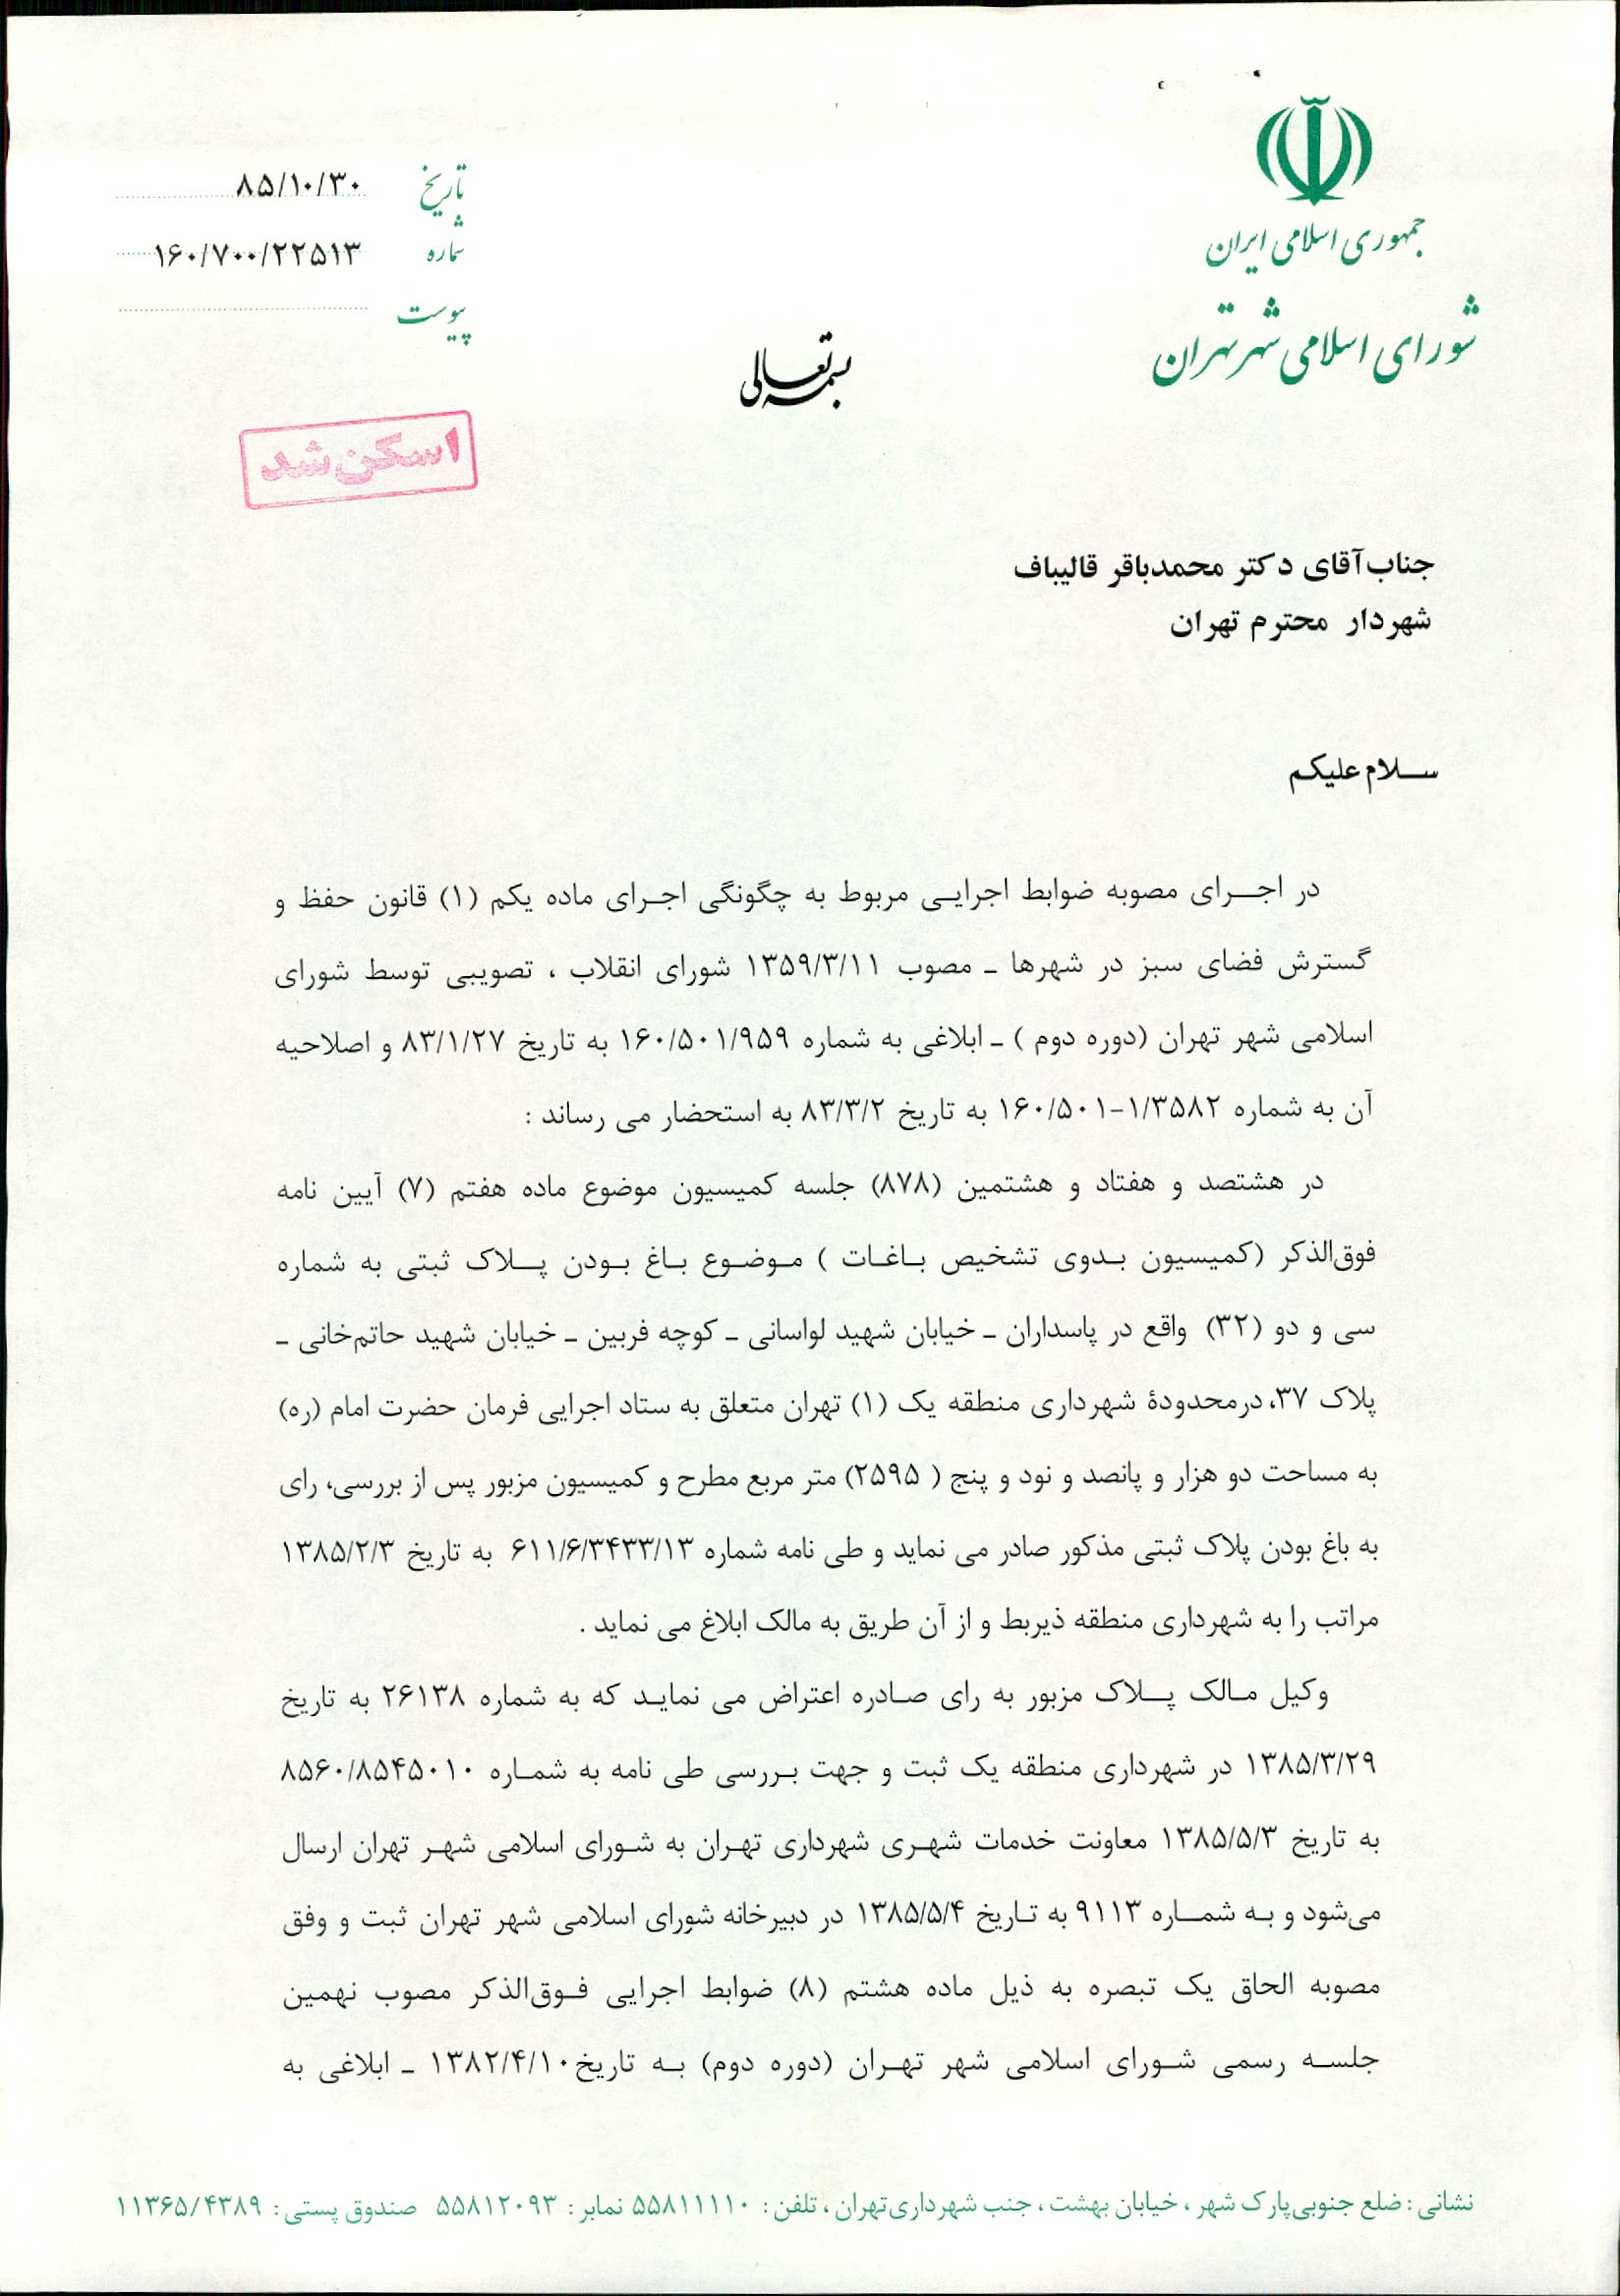 جمهوری اسلامی ایران
شورای اسلامی شهر تهران
تاریخ ۸۵/۱۰/۳۰
شماره ۱۶۰/۷۰۰/۲۲۵۱۳
پیوست
بسمه تعالی
اسکن شد
جناب آقای دکتر محمدباقر قالیباف
شهردار محترم تهران
سلام علیکم
در اجرای مصوبه ضوابط اجرایی مربوط به چگونگی اجرای ماده یکم (۱) قانون حفظ و
گسترش فضای سبز در شهرها ـ مصوب ۱۳۵۹/۳/۱۱ شورای انقلاب ، تصویبی توسط شورای
اسلامی شهر تهران (دوره دوم ) ـ ابلاغی به شماره ۱۶۰/۵۰۱/۹۵۹ به تاریخ ۸۳/۱/۲۷ و اصلاحیه
آن به شماره ۱/۳۵۸۲-۱۶۰/۵۰۱ به تاریخ ۸۳/۳/۲ به استحضار می رساند :
در هشتصد و هفتاد و هشتمین (۸۷۸) جلسه کمیسیون موضوع ماده هفتم (۷) آیین نامه
فوق‌الذکر (کمیسیون بدوی تشخیص باغات ) موضوع باغ بودن پلاک ثبتی به شماره
سی و دو (۳۲) واقع در پاسداران ـ خیابان شهید لواسانی ـ کوچه فربین ـ خیابان شهید حاتم‌خانی ـ
پلاک ۳۷، درمحدودۀ شهرداری منطقه یک (۱) تهران متعلق به ستاد اجرایی فرمان حضرت امام (ره)
به مساحت دو هزار و پانصد و نود و پنج ( ۲۵۹۵) متر مربع مطرح و کمیسیون مزبور پس از بررسی، رای
به باغ بودن پلاک ثبتی مذکور صادر می نماید و طی نامه شماره ۶۱۱/۶/۳۴۳۳/۱۳ به تاریخ ۱۳۸۵/۲/۳
مراتب را به شهرداری منطقه ذیربط و از آن طریق به مالک ابلاغ می نماید .
وکیل مالک پلاک مزبور به رای صادره اعتراض می نماید که به شماره ۲۶۱۳۸ به تاریخ
۱۳۸۵/۳/۲۹ در شهرداری منطقه یک ثبت و جهت بررسی طی نامه به شماره ۸۵۶۰/۸۵۴۵۰۱۰
به تاریخ ۱۳۸۵/۵/۳ معاونت خدمات شهری شهرداری تهران به شورای اسلامی شهر تهران ارسال
می‌شود و به شماره ۹۱۱۳ به تاریخ ۱۳۸۵/۵/۴ در دبیرخانه شورای اسلامی شهر تهران ثبت و وفق
مصوبه الحاق یک تبصره به ذیل ماده هشتم (۸) ضوابط اجرایی فوق‌الذکر مصوب نهمین
جلسه رسمی شورای اسلامی شهر تهران (دوره دوم) به تاریخ۱۳۸۲/۴/۱۰ ـ ابلاغی به
نشانی : ضلع جنوبی پارک شهر ، خیابان بهشت ، جنب شهرداری تهران ، تلفن : ۵۵۸۱۱۱۱۰ نمابر : ۵۵۸۱۲۰۹۳ صندوق پستی : ۱۱۳۶۵/۴۳۸۹